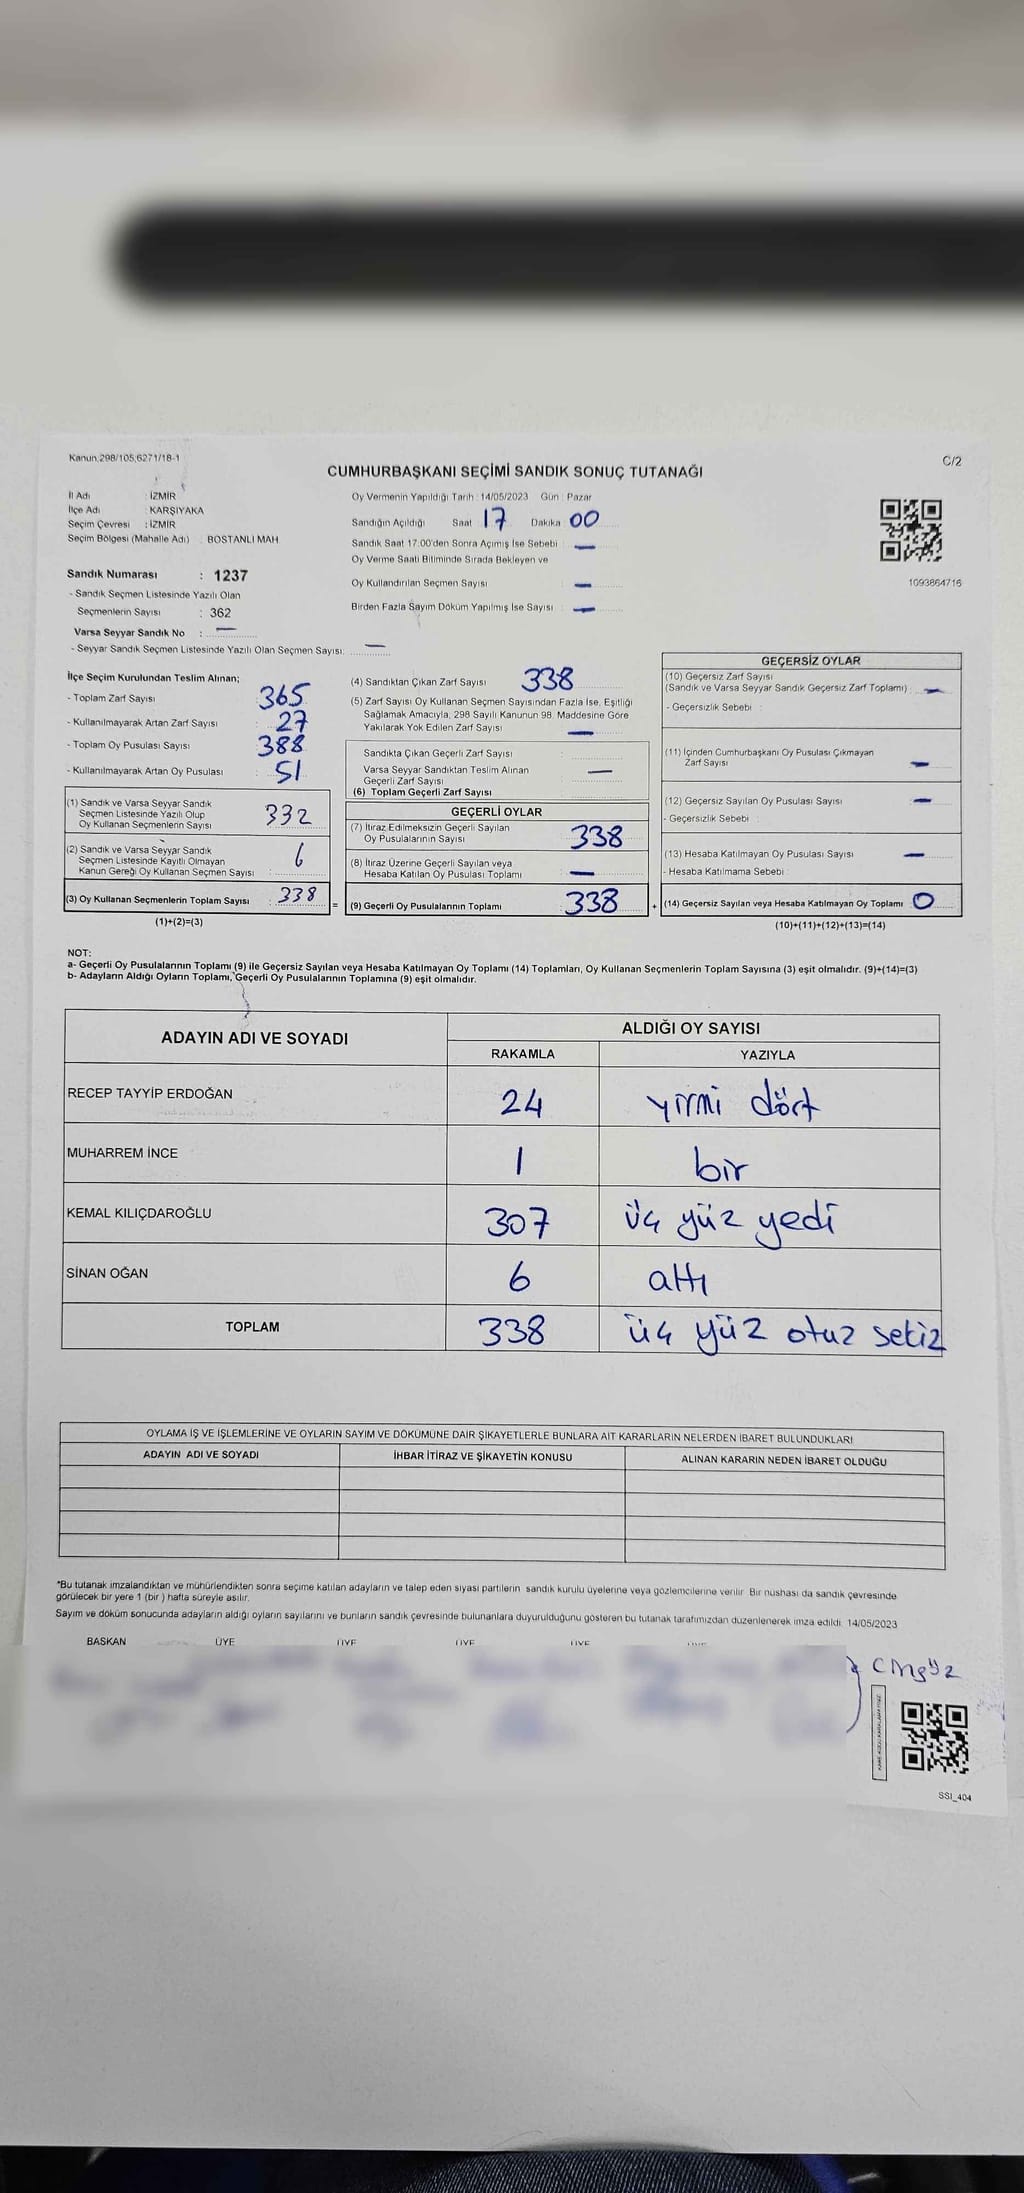 Kanun,298/105,6271/18-1
C/2
CUMHURBAŞKANI SEÇİMİ SANDIK SONUÇ TUTANAĞI
İl Adı : İZMİR
İlçe Adı : KARŞIYAKA
Seçim Çevresi : İZMİR
Seçim Bölgesi (Mahalle Adı) : BOSTANLI MAH
Sandık Numarası : 1237
- Sandık Seçmen Listesinde Yazılı Olan
Seçmenlerin Sayısı : 362
Varsa Seyyar Sandık No : —
- Seyyar Sandık Seçmen Listesinde Yazılı Olan Seçmen Sayısı: —
Oy Vermenin Yapıldığı Tarih : 14/05/2023 Gün : Pazar
Sandığın Açıldığı Saat 17 Dakika 00
Sandık Saat 17:00'den Sonra Açımış İse Sebebi : —
Oy Verme Saati Bitiminde Sırada Bekleyen ve
Oy Kullandırılan Seçmen Sayısı —
Birden Fazla Sayım Döküm Yapılmış İse Sayısı : —
1093864716
İlçe Seçim Kurulundan Teslim Alınan;
- Toplam Zarf Sayısı : 365
- Kullanılmayarak Artan Zarf Sayısı : 27
- Toplam Oy Pusulası Sayısı : 388
- Kullanılmayarak Artan Oy Pusulası : 51
(1) Sandık ve Varsa Seyyar Sandık
Seçmen Listesinde Yazılı Olup
Oy Kullanan Seçmenlerin Sayısı : 332
(2) Sandık ve Varsa Seyyar Sandık
Seçmen Listesinde Kayıtlı Olmayan
Kanun Gereği Oy Kullanan Seçmen Sayısı : 6
(3) Oy Kullanan Seçmenlerin Toplam Sayısı : 338
(1)+(2)=(3)
(4) Sandıktan Çıkan Zarf Sayısı : 338
(5) Zarf Sayısı Oy Kullanan Seçmen Sayısından Fazla İse, Eşitliği
Sağlamak Amacıyla, 298 Sayılı Kanunun 98. Maddesine Göre
Yakılarak Yok Edilen Zarf Sayısı : —
Sandıkta Çıkan Geçerli Zarf Sayısı :
Varsa Seyyar Sandıktan Teslim Alınan
Geçerli Zarf Sayısı : —
(6) Toplam Geçerli Zarf Sayısı
GEÇERLİ OYLAR
(7) İtiraz Edilmeksizin Geçerli Sayılan
Oy Pusulalarının Sayısı : 338
(8) İtiraz Üzerine Geçerli Sayılan veya
Hesaba Katılan Oy Pusulası Toplamı : —
= (9) Geçerli Oy Pusulalarının Toplamı : 338
GEÇERSİZ OYLAR
(10) Geçersiz Zarf Sayısı
(Sandık ve Varsa Seyyar Sandık Geçersiz Zarf Toplamı) : —
- Geçersizlik Sebebi :
(11) İçinden Cumhurbaşkanı Oy Pusulası Çıkmayan
Zarf Sayısı : —
(12) Geçersiz Sayılan Oy Pusulası Sayısı : —
- Geçersizlik Sebebi :
(13) Hesaba Katılmayan Oy Pusulası Sayısı : —
- Hesaba Katılmama Sebebi :
+ (14) Geçersiz Sayılan veya Hesaba Katılmayan Oy Toplamı : 0
(10)+(11)+(12)+(13)=(14)
NOT:
a- Geçerli Oy Pusulalarının Toplamı (9) ile Geçersiz Sayılan veya Hesaba Katılmayan Oy Toplamı (14) Toplamları, Oy Kullanan Seçmenlerin Toplam Sayısına (3) eşit olmalıdır. (9)+(14)=(3)
b- Adayların Aldığı Oyların Toplamı, Geçerli Oy Pusulalarının Toplamına (9) eşit olmalıdır.
ADAYIN ADI VE SOYADI ALDIĞI OY SAYISI
RAKAMLA YAZIYLA
RECEP TAYYİP ERDOĞAN 24 yirmi dört
MUHARREM İNCE 1 bir
KEMAL KILIÇDAROĞLU 307 üç yüz yedi
SİNAN OĞAN 6 altı
TOPLAM 338 üç yüz otuz sekiz
OYLAMA İŞ VE İŞLEMLERİNE VE OYLARIN SAYIM VE DÖKÜMÜNE DAİR ŞİKAYETLERLE BUNLARA AİT KARARLARIN NELERDEN İBARET BULUNDUKLARI
ADAYIN ADI VE SOYADI İHBAR İTİRAZ VE ŞİKAYETİN KONUSU ALINAN KARARIN NEDEN İBARET OLDUĞU
*Bu tutanak imzalandıktan ve mühürlendikten sonra seçime katılan adayların ve talep eden siyasi partilerin sandık kurulu üyelerine veya gözlemcilerine verilir. Bir nüshası da sandık çevresinde
görülecek bir yere 1 (bir) hafta süreyle asılır.
Sayım ve döküm sonucunda adayların aldığı oyların sayılarını ve bunların sandık çevresinde bulunanlara duyurulduğunu gösteren bu tutanak tarafımızdan düzenlenerek imza edildi. 14/05/2023
BAŞKAN ÜYE ÜYE ÜYE ÜYE
SSI_404